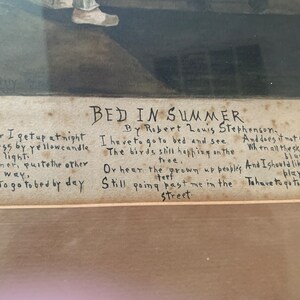 BED IN SUMMER
By Robert Louis Stephenson.
I get up at night
ss by yellow candle
light.
mer, quite the other
way,
to go to bed by day
I have to go to bed and see
The birds still hopping on the
tree,
Or hear the grown up people's
feet
Still going past me in the
street.
And does it not
When all the s
blu
And I should lik
play
To have to go t